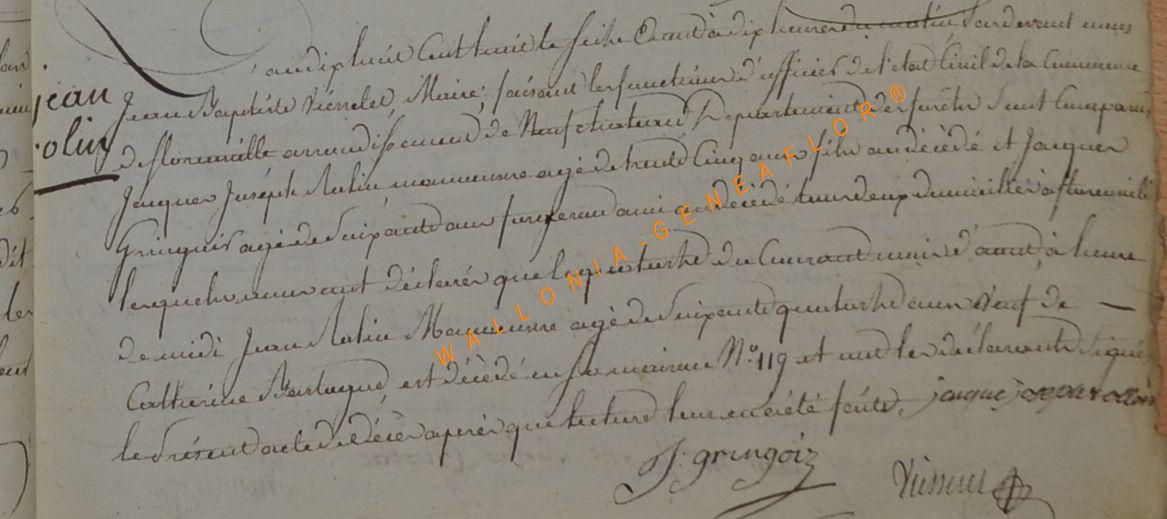 jean
Rolin
an dix huit cent huit le seize d'aout à dix heures du matin Pardevant nous
Jean Baptiste Maire faisant les fonctions d'officier de l'etat Civil de la Commune
de florenville arrondissement de Neufchateau Departement des forêts sont Comparus
Jacques Joseph Rolin age de trente Cinq ans fils au décédé et Jacques
Gringoir agé de soixante ans ami au décédé tous deux domiciliés a florenville
lesquels nous ont déclarés que le quatorze du Courant mois d'aout à heure
de midi Jean Rolin Manœuvre agé de soixante quatorze ans Veuf de
Catherine est décédé en sa maison N.º 119 et ont les déclarants signé
le Présent acte de décès après que lecture leur en a été faite. jacque joseph rollin
J: gringoiz
WALLONIA-GENEAFLOR®